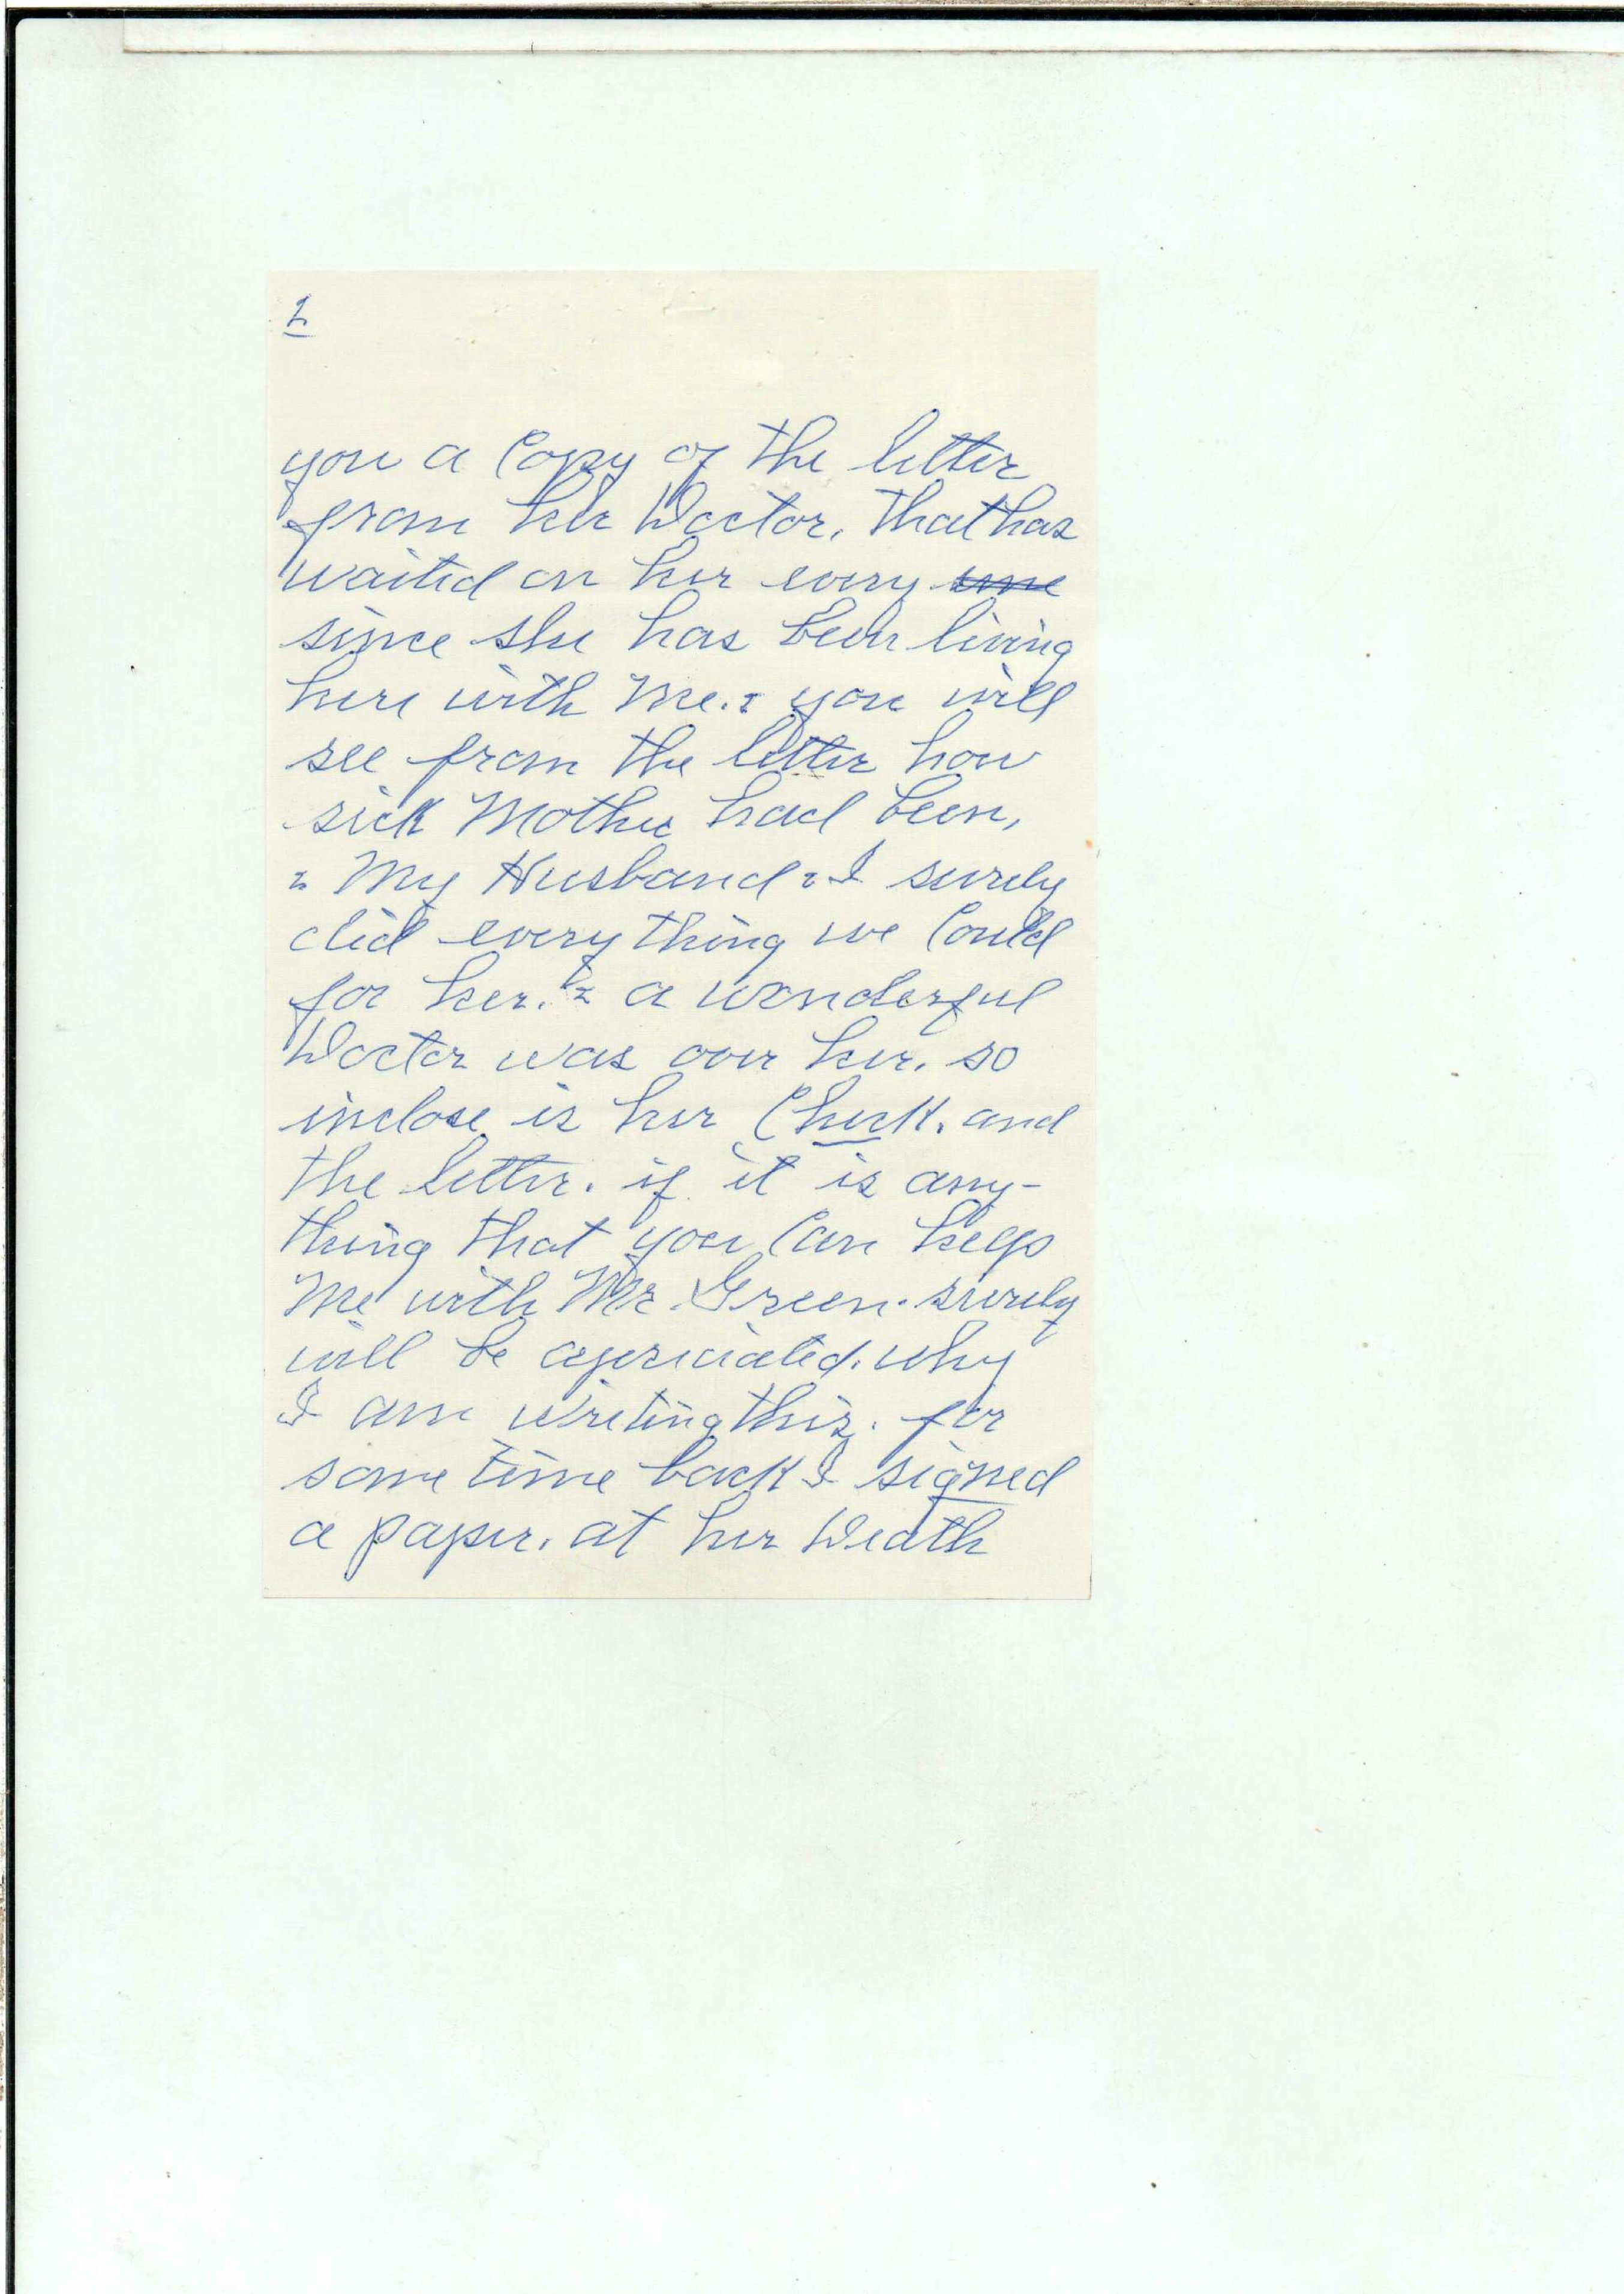 2
you a Copy of the letter
from her Doctor. that has
waited on her every
since she has been living
here with Me. & you will
see from the letter how
sick Mother had been,
& My Husband & I surely
did every thing we Could
for her. & a wonderful
Doctor was over her. so
inclose is her Check. and
the letter. if it is any-
thing that you Can help
Me with Mr. Green. surely
will be apriciated. why
I am writing this. for
some time back I signed
a paper. at her Death